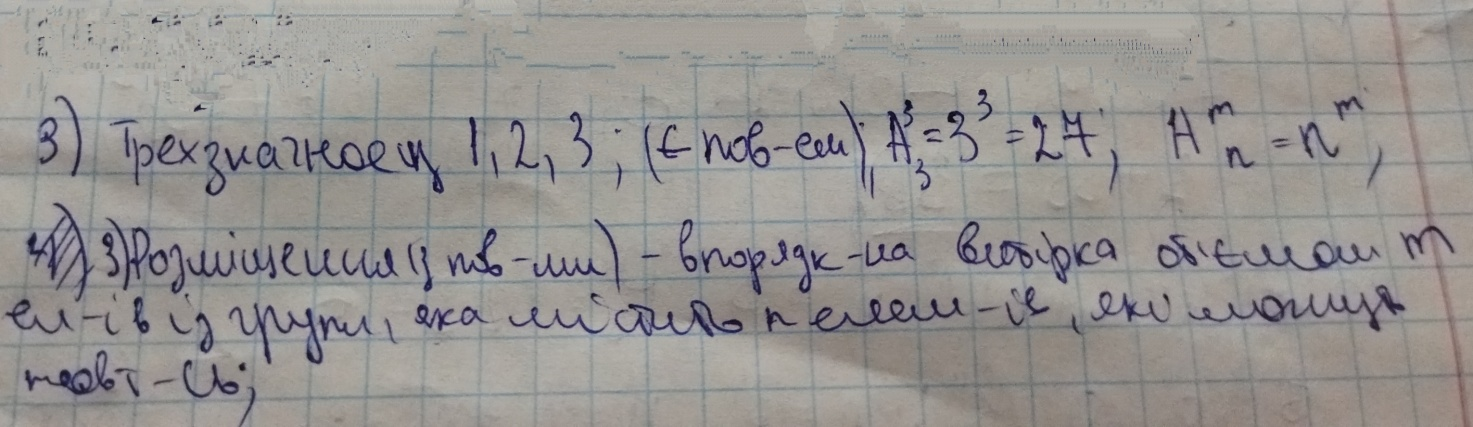 3) Трехзначное ц 1, 2, 3; (є пов-ем); A³₃ = 3³ = 27; Aᵐₙ = nᵐ;
3) Розміщення (з пов-ми) - впорядк-на вибірка об'ємом m
ел-ів із групи, яка містить n елем-ів, які можуть
повт-сь;